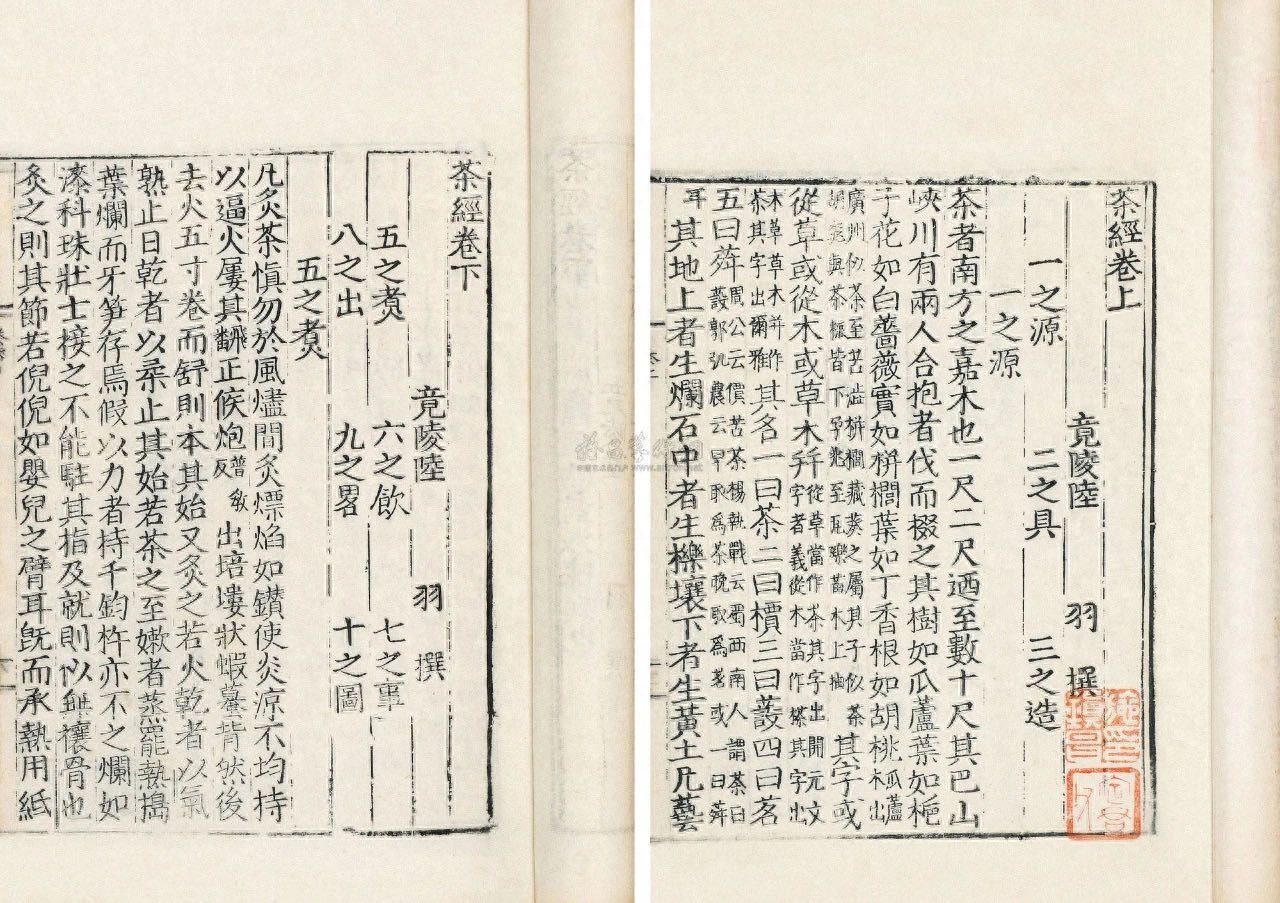 茶經卷上
竟陵陸 羽 撰
一之源 二之具 三之造
一之源
茶者南方之嘉木也一尺二尺迺至數十尺其巴山
峽川有兩人合抱者伐而掇之其樹如瓜蘆葉如梔
子花如白薔薇實如栟櫚葉如丁香根如胡桃瓜蘆木出
廣州似茶至苦澁栟櫚蒲葵之屬其子似茶
胡桃與茶根皆下孕兆至瓦礫苗木上抽其字或
從草或從木或草木幷從草當作茶其字出開元文
字者義從木當作搽其字出
木草草木并作
荼其字出爾雅其名一曰茶二曰檟三曰蔎四曰茗
五曰荈周公云檟苦茶楊執戟云蜀西南人謂茶曰
蔎郭弘農云早取爲茶晚取爲茗或一曰荈
耳其地上者生爛石中者生櫟壤下者生黃土凡藝
茶經卷下
竟陵陸 羽 撰
五之煑 六之飲 七之事
八之出 九之畧 十之圖
五之煑
凡炙茶慎勿於風燼間炙熛焰如鑚使炎凉不均持
以逼火屢其飜正候炮普教反出培塿狀蝦蟇背然後
去火五寸卷而舒則本其始又炙之若火乾者以氣
熟止日乾者以柔止其始若茶之至嫰者蒸罷熱搗
葉爛而牙笋存焉假以力者持千鈞杵亦不之爛如
漆科珠壯士接之不能駐其指及就則似無禳骨也
炙之則其節若倪倪如嬰兒之臂耳旣而承熱用紙